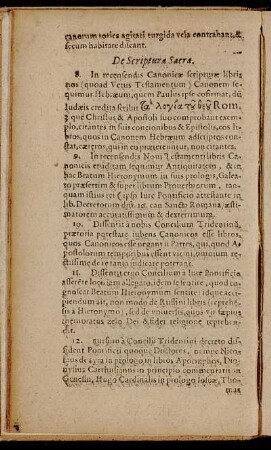 tanorum toties agitati turgida vela contrahant, &
secum habitare discant.
De Scriptura Sacra.
8. In recensendis Canonicæ scripturæ libris
nos (quoad Vetus Testamentum) Canonem se-
quimur Hebræum, quem Paulus ipse confirmat, dū
Judæis credita scribit τὰ λογία τοῦ θεοῦ Rom.
3. que Christus & Apostoli suo comprobant exem-
plo, citantes in suis concionibus & Epistolis, eos li-
bros, quos in Canonem Hebræum adscriptos con-
stat, cæteros, qui in eo prætereuntur, non citantes.
9. In recensendis Novi Testamenti libris Ca-
nonicis eruditam sequimur Antiquitatem, & in
hac Beatum Hieronymum in suis prologis, Galeato
præsertim & super librum Proverbiorum,
quam illius rei & ipso Jure Pontificio attestante in
lib. Decretorum dist. 15. can Sancta Romana æsti-
matorem accuratissimum & dexterrimum.
10. Dissentit à nobis Concilium Tridentinū,
prætoria potestate jubens Canonicos esse libros,
quos Canonicos esse negant Patres, qui, quod A-
postolorum temporibus essent vicini,
de re tanta indicare potuerant.
11. Dissentit ergo Concilium à Jure Pontificio
asserere locum allegato, idem & iste, quod co-
gnoscat Beatum Hieronymum sentire idque acci-
piendum ait, non modo de Ruffini libris (reprehe-
sis à Hieronymo), sed de universis, quos vir sæpius
memoratus zelo Dei & fidei religione reprehen-
dit.
12. à Concilii Tridentini decreto dis-
sident Pontificii quoque Doctores, nempe Nico-
laus de Lyra in prologo in libros Apocryphos, Dio-
nysius Carthusianus in principio commentarii in
Genesin, Hugo Cardinalis in prologo Josuæ, Tho-
mas